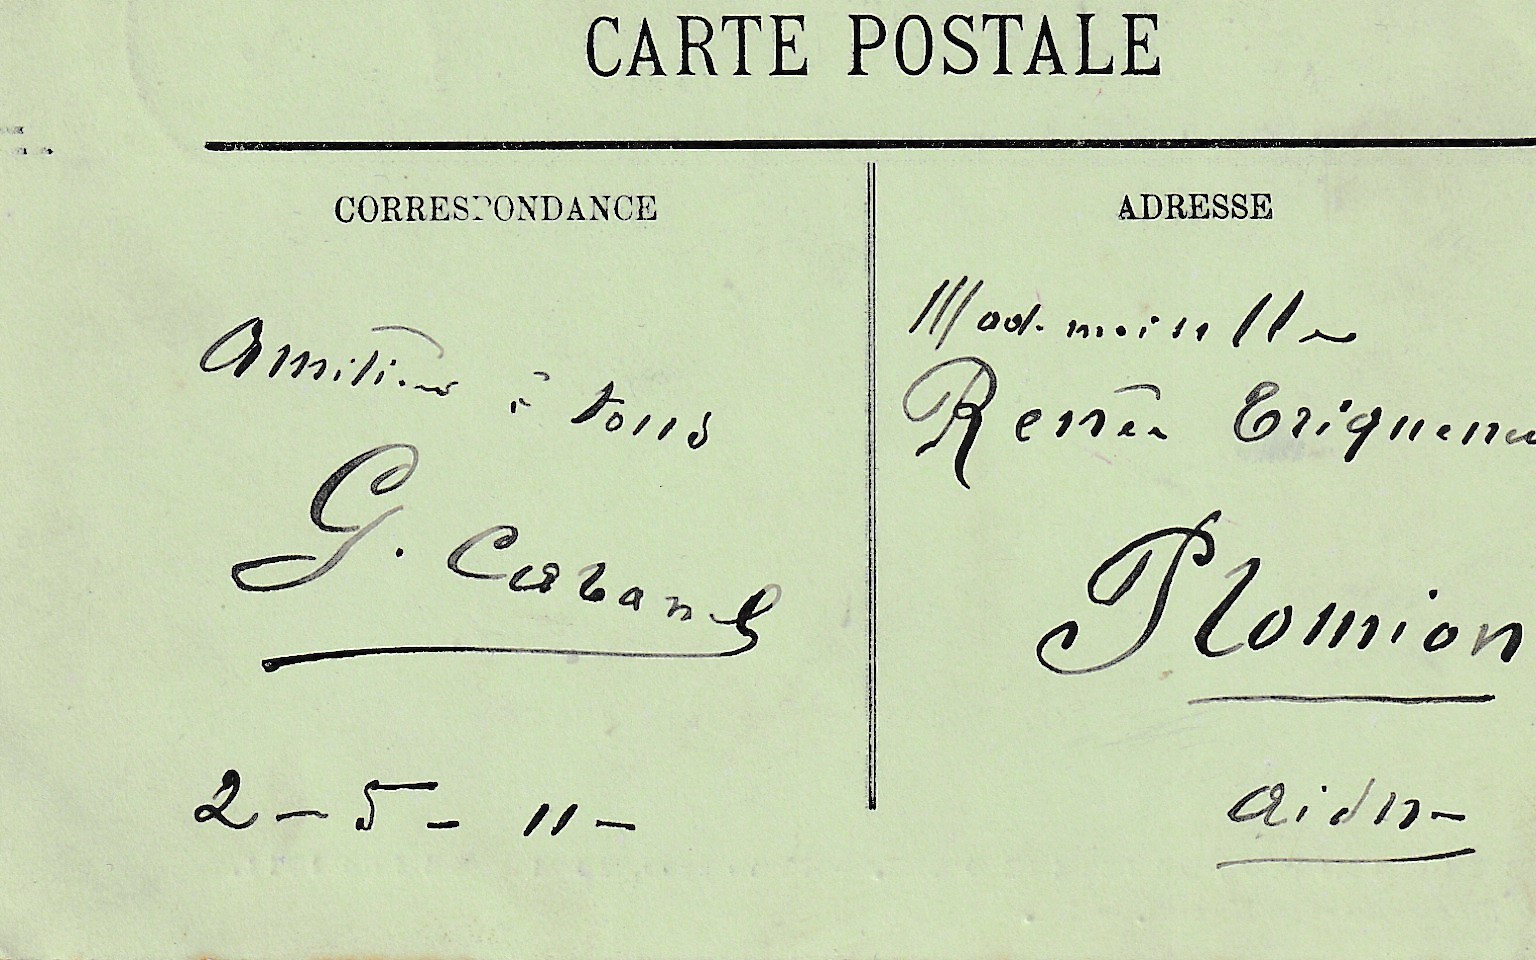 CARTE POSTALE
CORRESPONDANCE
Amitiés à tous
G. Caband
2 - 5 - 11 -
ADRESSE
Mademoiselle
Renée
Plomion
Aisne